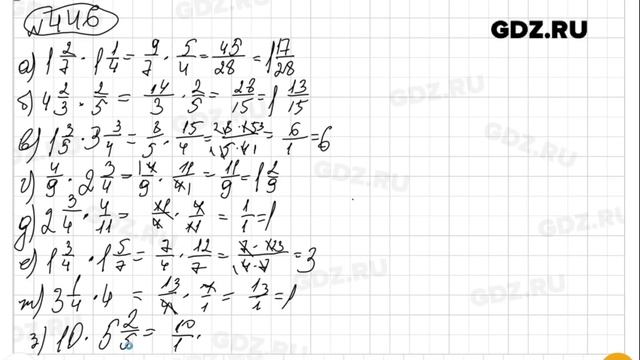 №446
GDZ.RU
а) 1 2/7 · 1 1/4 = 9/7 · 5/4 = 45/28 = 1 17/28
б) 4 2/3 · 2/5 = 14/3 · 2/5 = 28/15 = 1 13/15
в) 1 3/5 · 3 3/4 = 8/5 · 15/4 = = 6/1 = 6
г) 4/9 · 2 3/4 = 4/9 · 11/4 = 11/9 = 1 2/9
д) 2 3/4 · 4/11 = 11/4 · 4/11 = 1/1 = 1
е) 1 3/4 · 1 5/7 = 7/4 · 12/7 = = 3
ж) 3 1/4 · 4 = 13/4 · 4/1 = 13/1 = 1
з) 10 · 5 2/5 = 10/1 ·